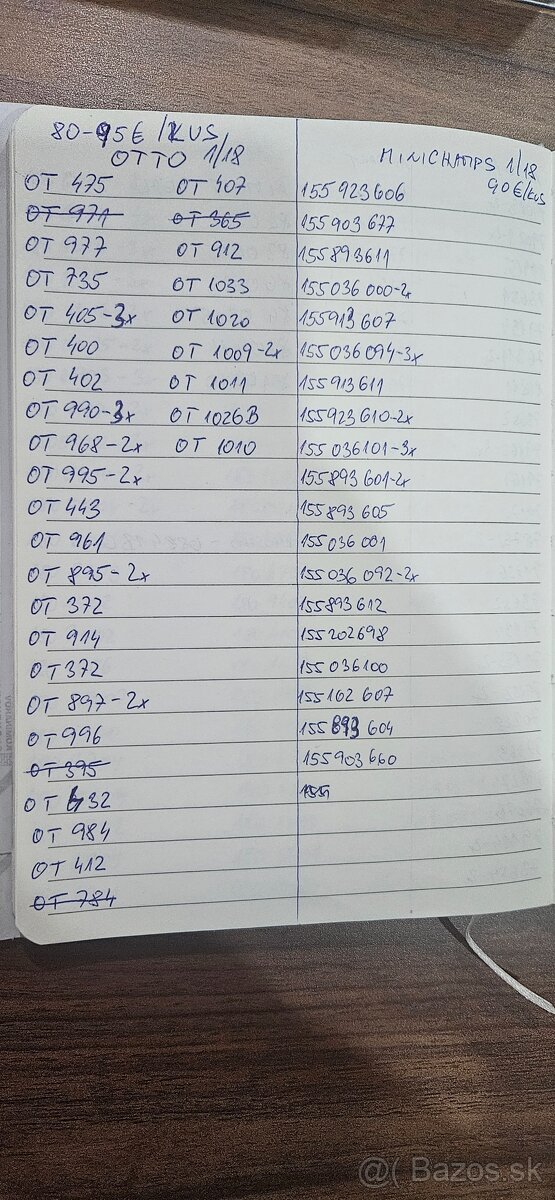 80-95€/KUS
OTTO 1/18
OT 475 OT 407
OT 971 OT 365
OT 977 OT 912
OT 735 OT 1033
OT 405-3x OT 1020
OT 400 OT 1009-2x
OT 402 OT 1011
OT 990-3x OT 1026B
OT 968-2x OT 1010
OT 995-2x
OT 443
OT 961
OT 895-2x
OT 372
OT 914
OT 372
OT 897-2x
OT 996
OT 395
OT 432
OT 984
OT 412
OT 784
MINICHAMPS 1/18
90€/KUS
155923606
155903677
155893611
155036000-2x
155913607
155036094-3x
155913611
155923610-2x
155036101-3x
155893601-2x
155893605
155036001
155036092-2x
155893612
155202698
155036100
155162607
155893604
155903660
155
@( Bazos.sk